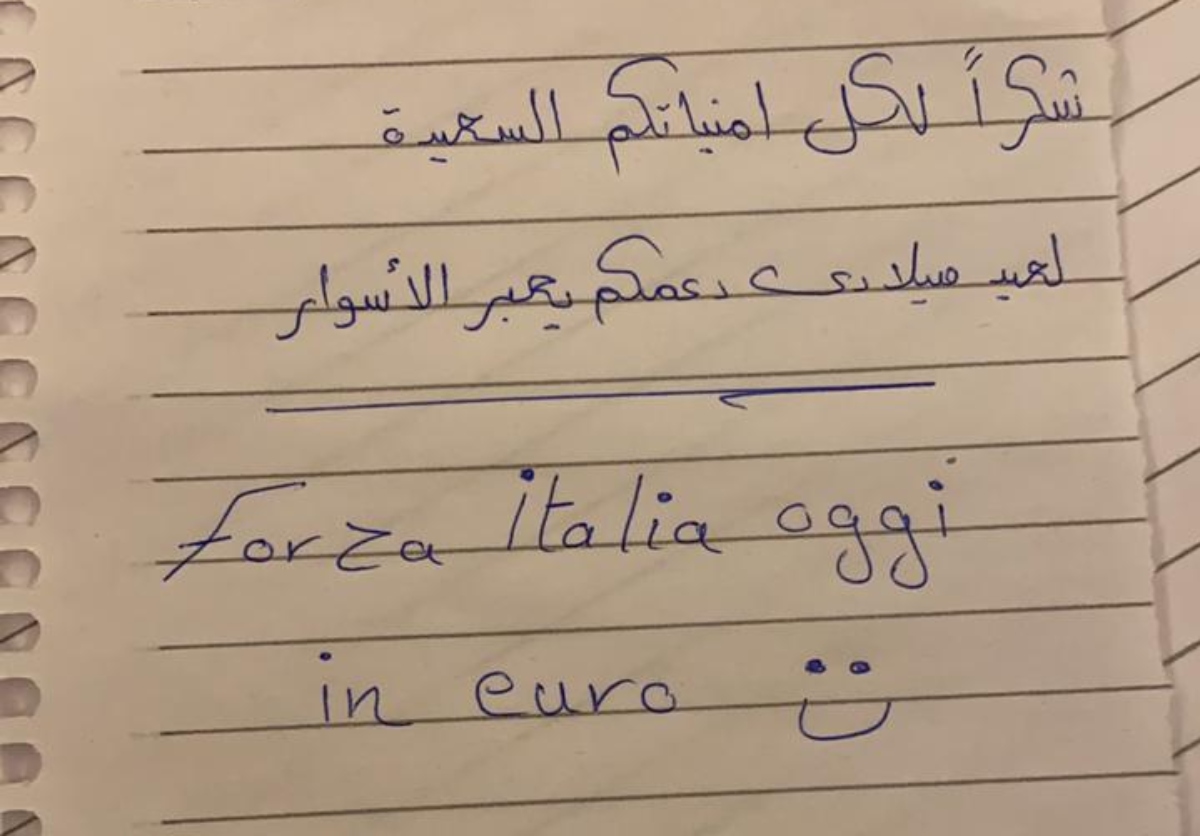 شكراً لكل امنياتكم السعيدة
لعيد ميلادى دعمكم يعبر الأسوار
forza italia oggi
in euro